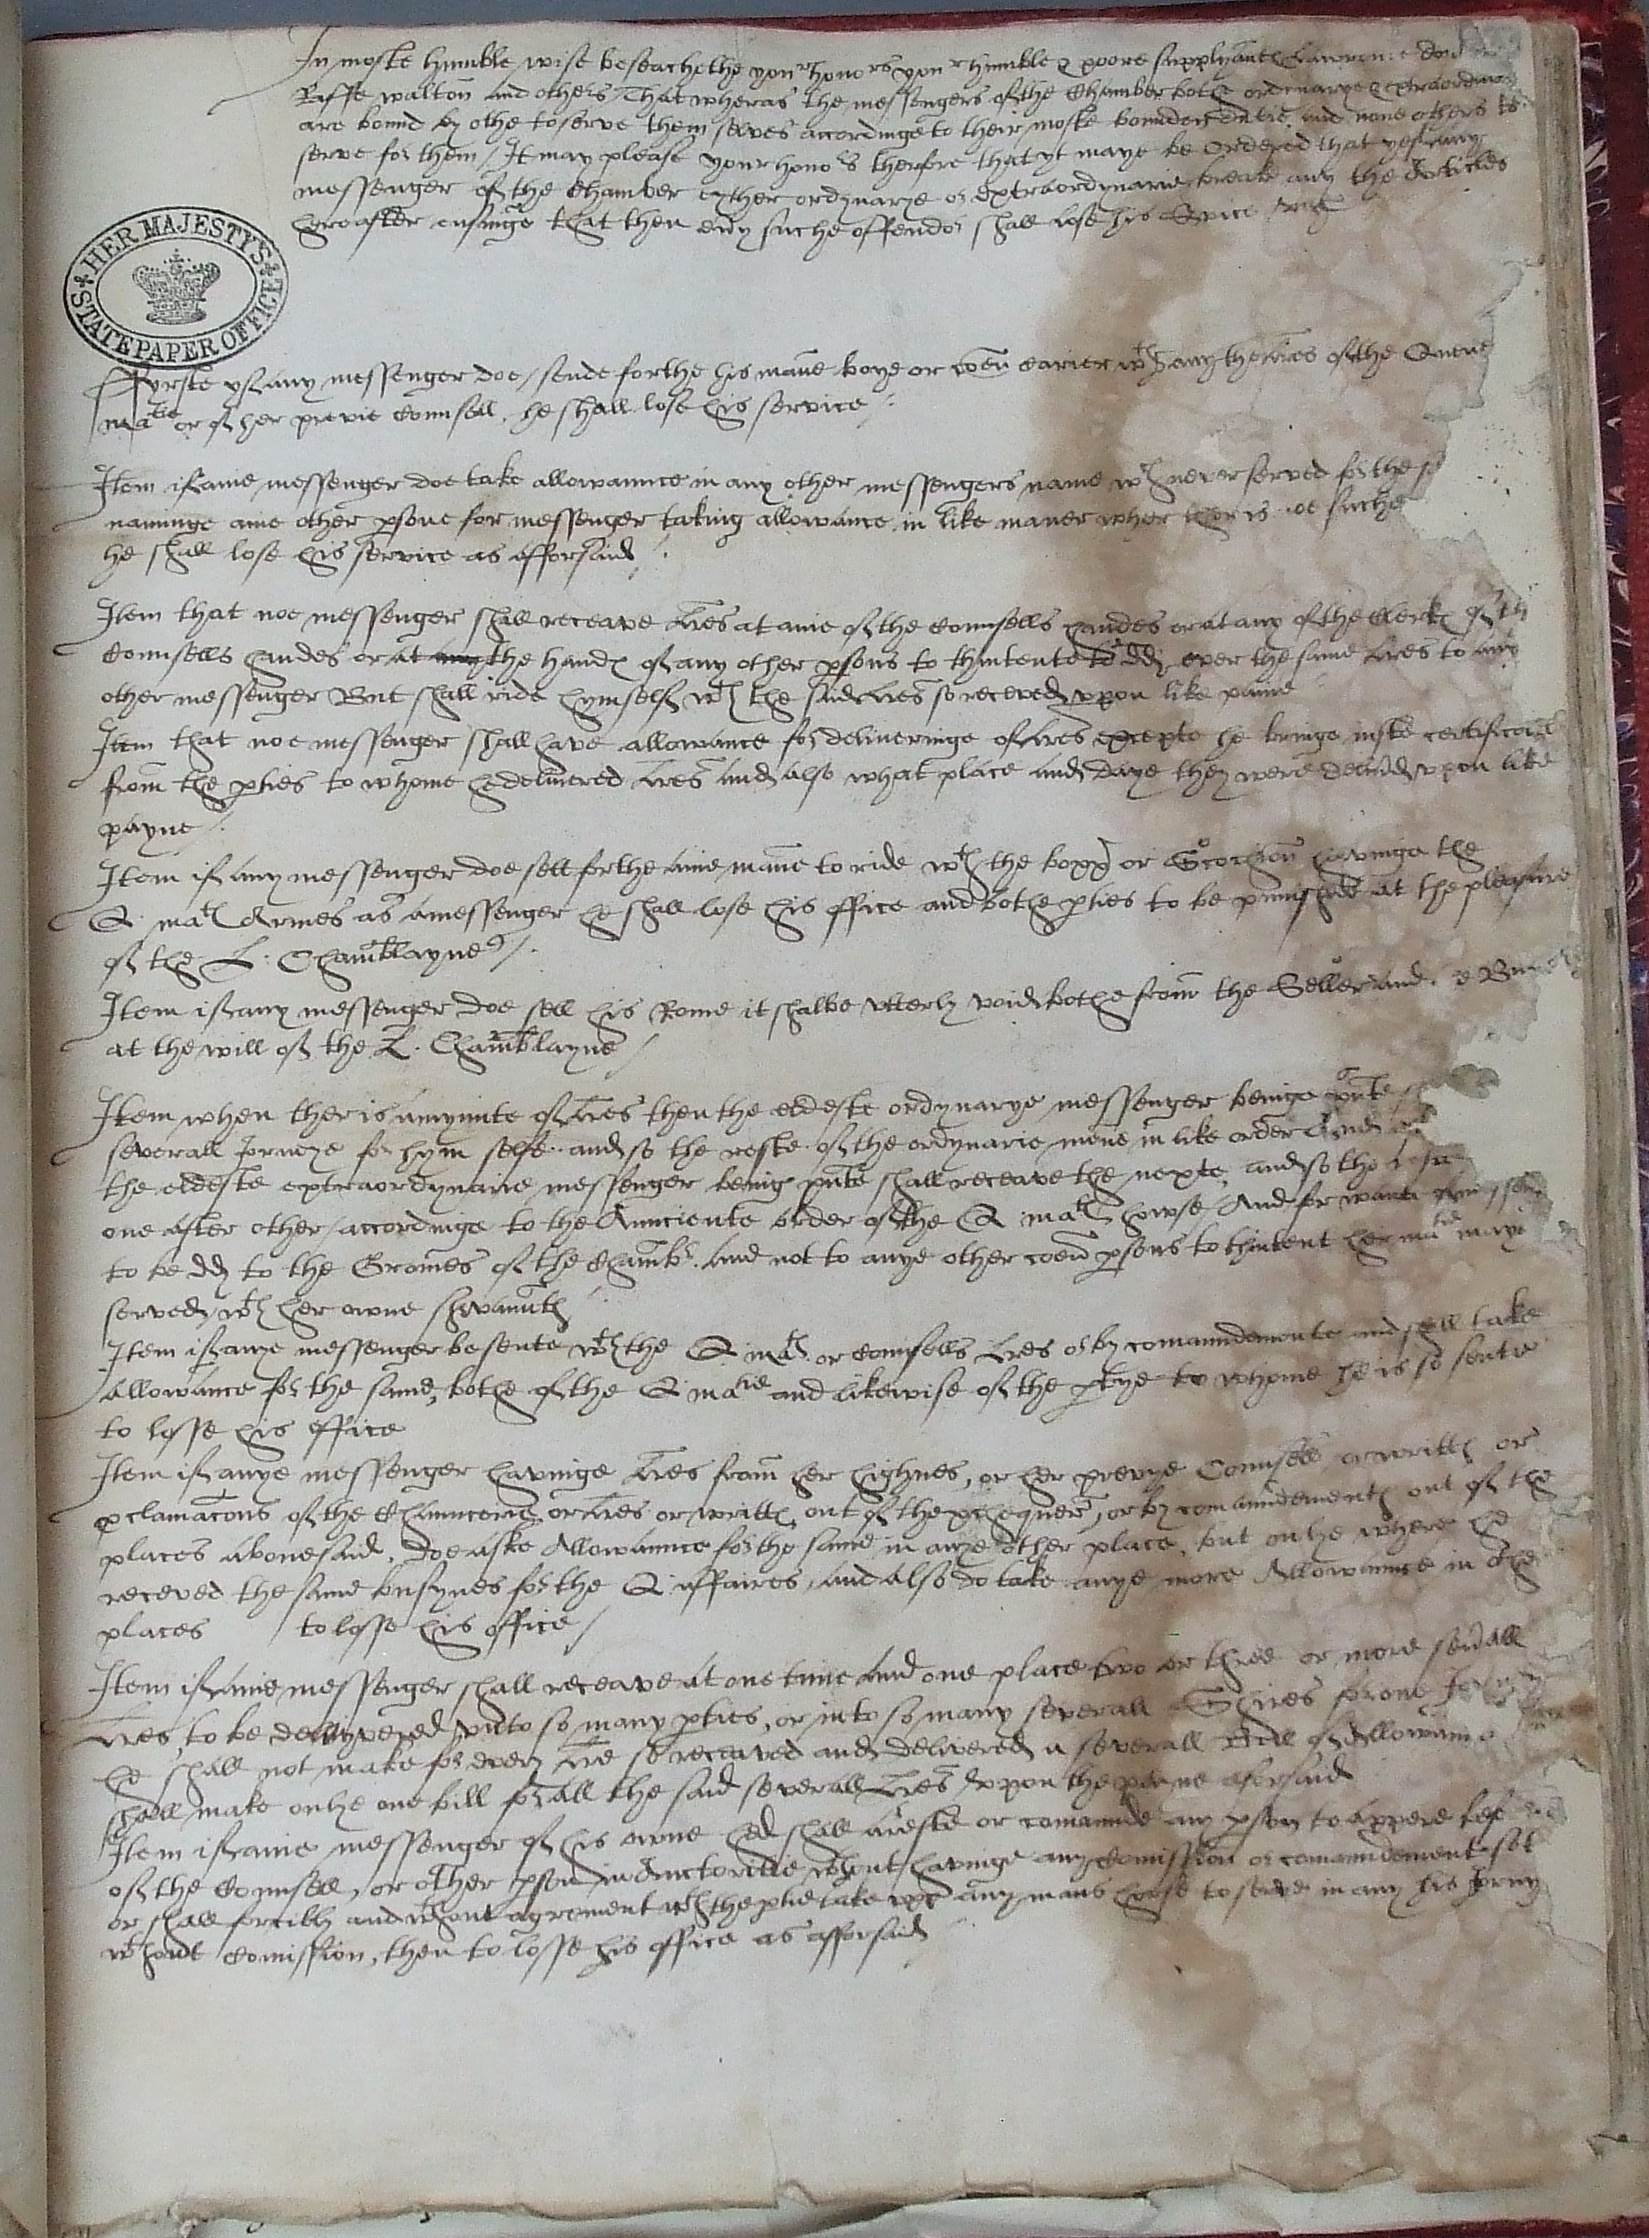 In moste humble wise beseachethe your honors your humble & poore supplyantes Lawrence
Raffe walton and others / That wheras the messengers of the Chamber bothe ordinarye & extraordinar
are bound by othe to serve them selves accordinge to their moste bounden dutie and none others to
serve for them / It may please your honors therfore that yt maye be ordered that yf any
messenger of the Chamber eyther ordynarye or extraordynarie breake any the Articles
hereafter ensuinge that then every suche offendor shall lose his service
HER MAJESTY'S STATE PAPER OFFICE
Fyrste yf any messenger doe / sende forthe his mane boye or comen carier wth any the lres of the Quene
matie or of her previe Counsell, he shall lose his service /.
Item if anie messenger doe take allowaunce in any other messengers name wch never served for the
naminge anie other psone for messenger taking allowance in like maner wher ther is noe suche
he shall lose his service as afforsaid /.
Item that noe messenger shall receave lres at anie of the Counsells handes or at any of the Clerkes of th
Counsells handes or at any the handes of any other psons to thintente to dd over the same lres to any
other messenger But shall ride hymself wth the said lres so receved upon like paine
Item that noe messenger shall have allowance for deliveringe of lres excepte he bringe juste certificat
from the pties to whome he delivered lres and also what place and daye they were deliv'd upon like
payne /.
Item if any messenger doe sett forthe anie mane to ride wth the boxx or Scotchon havinge the
Q. mats Armes as a messenger he shall lose his office and bothe pties to be punished at the pleasure
of the L. Chamblayne /.
Item if any messenger doe sell his Rome it shalbe utterly void bothe from the Seller and
at the will of the L. Chamblayne /
Item when ther is amynute of lres then the eldeste ordynarye messenger beinge pnte
severall Jorneye for hym selfe and so the reste of the ordynarie mene in like order And
the eldeste extraordynarie messenger being pnte shall receave the nexte, and so the reste
one after other / accordinge to the Aunciente order of the Q mats howse / And for want of messen
to be dd to the Gromes of the Chamber. And not to anye other comen psons to thintent her matie maye
served wth her owne servauntes
Item if anye messenger be sente wth the Q mats or Counsells lres or by comaundemente and shall take
allowance for the same, bothe of the Q matie and likewise of the ptye to whome he is so sente
to losse his office
Item if anye messenger havinge lres from her highnes, or her prevye Counsell or writtes or
pclamacons of the Chauncerie or lres or writtes out of thexchequer, or by comaundementes out of the
places abovesaid, doe aske Allowaunce for the same in anye other place, but onlye where he
receved the same busynes for the Q affaires, and also do take anye more Allowaunce in the
places to losse his office /
Item if anie messenger shall receave at one time and one place two or three or more sevrall
lres, to be dellyvered unto so many pties, or into so many severall Shires for one Jorney
he shall not make for every lre so receaved and delivered a severall bill of allowaunc
shall make onlye one bill for all the said severall lres upon the peyne aforsaid
Item if anie messenger of his owne hed shall areste or comaunde any pson to appere before
of the Counsell, or other pson in Auctoritie wthout havinge any Comission or comaundement
or shall forcibly and wthout agrement wth the ptie take upp any mans horse to serve in any his Jorny
wthout Comission, then to losse his office as afforsaid